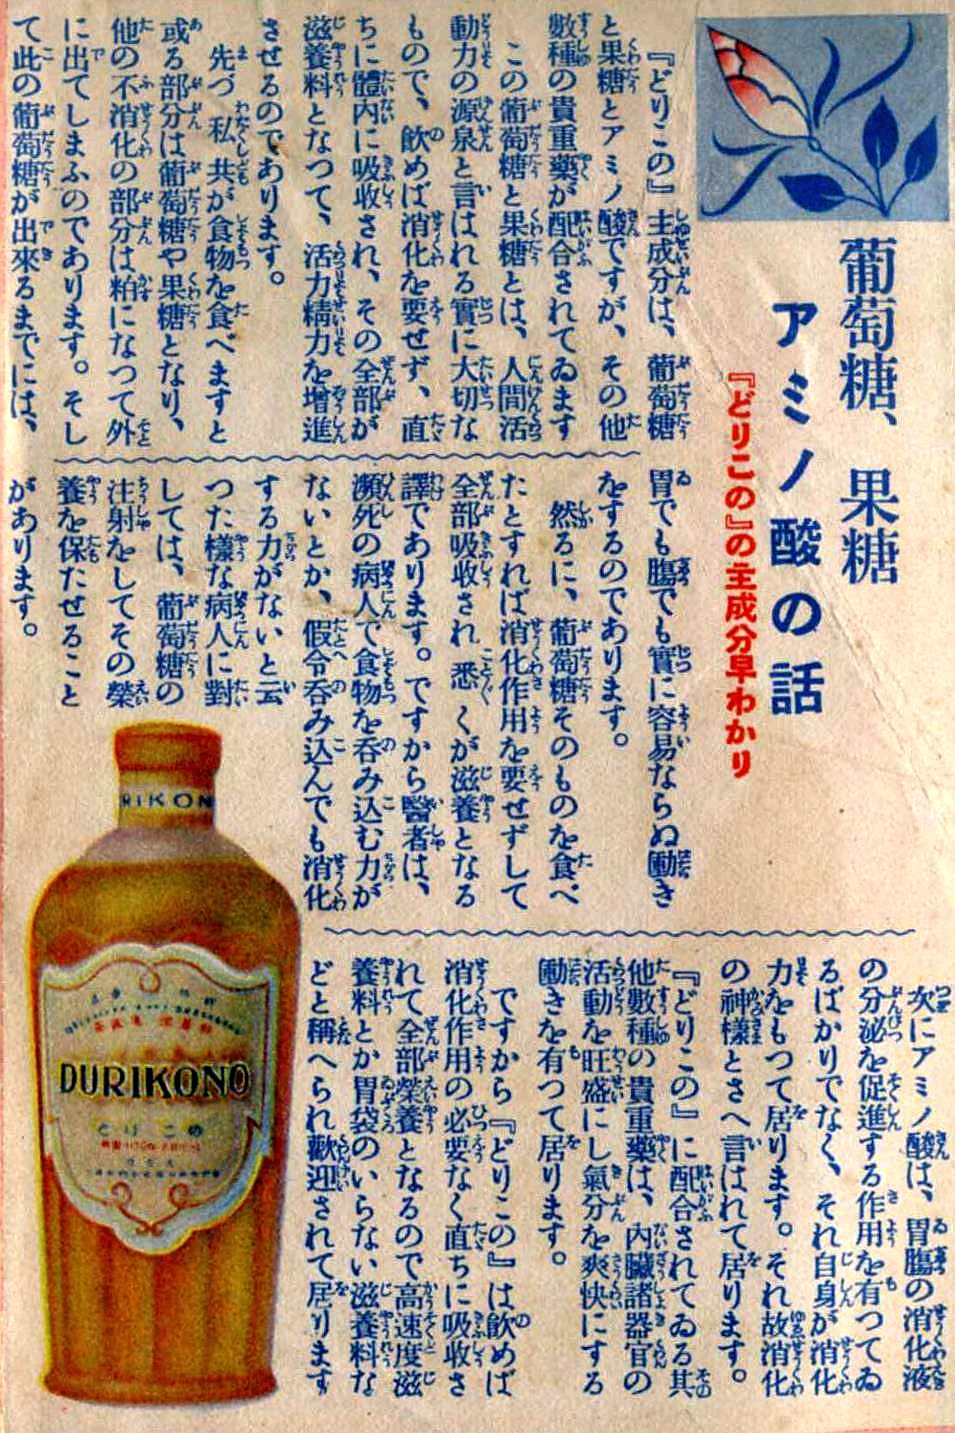 葡萄糖、果糖
アミノ酸の話
『どりこの』の主成分早わかり
『どりこの』主成分は、葡萄糖
と果糖とアミノ酸ですが、その他
數種の貴重藥が配合されてゐます
この葡萄糖と果糖とは、人間活
動力の源泉と言はれる實に大切な
もので、飮めば消化を要せず、直
ちに體內に吸收され、その全部が
滋養料となつて、活力精力を增進
させるのであります。
先づ私共が食物を食べますと
或る部分は葡萄糖や果糖となり、
他の不消化の部分は粕になつて外
に出てしまふのであります。そし
て此の葡萄糖が出來るまでには、
胃でも腸でも實に容易ならぬ働き
をするのであります。
然るに、葡萄糖そのものを食べ
たとすれば消化作用を要せずして
全部吸收され悉くが滋養となる
譯であります。ですから醫者は、
瀕死の病人で食物を呑み込む力が
ないとか、假令呑み込んでも消化
する力がないと云
つた樣な病人に對
しては、葡萄糖の
注射をしてその榮
養を保たせること
があります。
次にアミノ酸は、胃腸の消化液
の分泌を促進する作用を有つてゐ
るばかりでなく、それ自身が消化
力をもつて居ります。それ故消化
の神樣とさへ言はれて居ります。
『どりこの』に配合されてゐる其
他數種の貴重藥は、內臟諸器官の
活動を旺盛にし氣分を爽快にする
働きを有つて居ります。
ですから『どりこの』は飮めば
消化作用の必要なく直ちに吸收さ
れて全部榮養となるので高速度滋
養料とか胃袋のいらない滋養料な
どと稱へられ歡迎されて居ります
RIKON
DURIKONO
どりこの